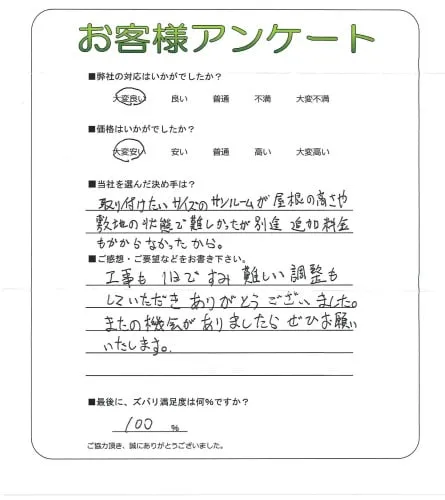 お客様アンケート
■弊社の対応はいかがでしたか?
大変良い 良い 普通 不満 大変不満
■価格はいかがでしたか?
大変安い 安い 普通 高い 大変高い
■当社を選んだ決め手は?
取り付けたいサイズのサンルームが屋根の高さや
敷地の状態で難しかったが別途 追加料金
もかからなかったから。
■ご感想・ご要望などをお書き下さい。
工事も 1日ですみ 難しい 調整も
していただき ありがとう ございました。
またの機会がありましたら ぜひお願い
いたします。
■最後に、ズバリ満足度は何%ですか?
100 %
ご協力頂き、誠にありがとうございました。